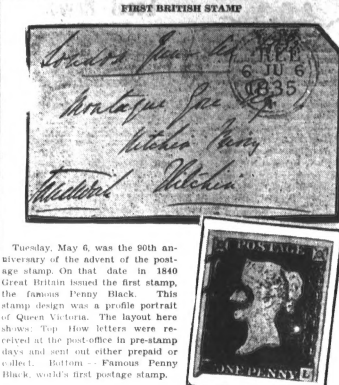 FIRST BRITISH STAMP
London
FREE
6 JU 6
1835
Montague Gore
Hitchin
Hitchin
Tuesday, May 6, was the 90th an-
niversary of the advent of the post-
age stamp. On that date in 1840
Great Britain issued the first stamp,
the famous Penny Black. This
stamp design was a profile portrait
of Queen Victoria. The layout here
shows: Top How letters were re-
ceived at the post-office in pre-stamp
days and sent out either prepaid or
collect. Bottom -- Famous Penny
Black, world's first postage stamp.
POSTAGE
ONE PENNY